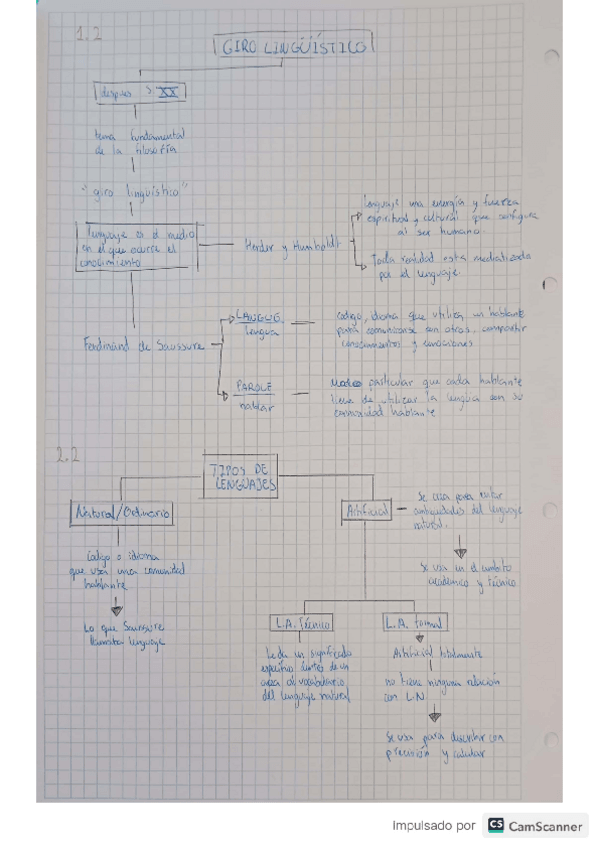 1.2
GIRO LINGÜÍSTICO
despues s XX
tema fundamental
de la filosofía
"giro linguistico"
lenguaje es el medio
en el que ocurre el
conocimiento
Herder y Humboldt
lenguaje una energía y fuerza
espiritual y cultural que configura
al ser humano.
Toda realidad esta mediatizada
por el lenguaje.
Ferdinand de Saussure
LANGUE
lengua
codigo, idioma que utiliza un hablante
para comunicarse con otros, compartir
conocimientos y emociones
PAROLE
hablar
Modo particular que cada hablante
tiene de utilizar la lengua con su
comunidad hablante
2.2
TIPOS DE
LENGUAJES
Natural/Ordinario
Código o idioma
que usa una comunidad
hablante
Lo que Saussure
llamaba lenguaje
Artificial
Se crea para evitar
ambigüedades del lenguaje
natural.
Se usa en el ambito
academico y técnico
L.A. Técnico
Le da un significado
específico dentro de un
area al vocabulario
del lenguaje natural
L.A. formal
Artificial totalmente
no tiene ninguna relación
con L.N
Se usa para describir con
precisión y calcular
Impulsado por CS CamScanner